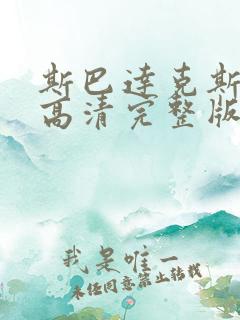 斯巴达克斯
高清完整版
我是唯一
未经同意禁止转载